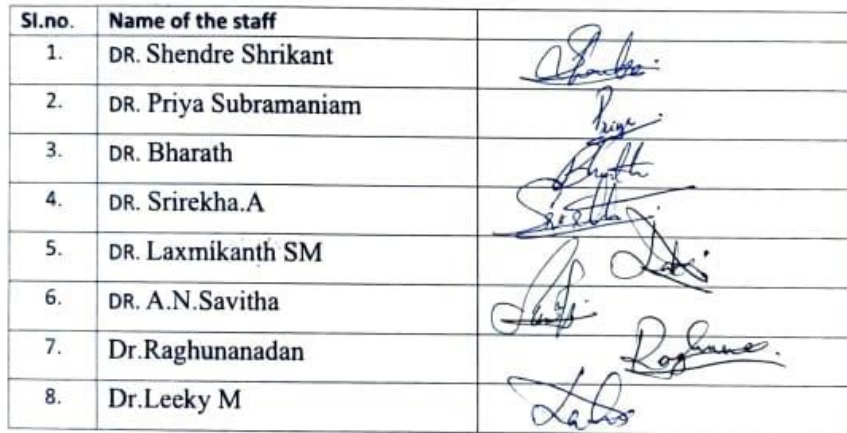 Sl.no. Name of the staff
1. DR. Shendre Shrikant
2. DR. Priya Subramaniam Priya
3. DR. Bharath
4. DR. Srirekha.A
5. DR. Laxmikanth SM
6. DR. A.N.Savitha
7. Dr.Raghunanadan
8. Dr.Leeky M